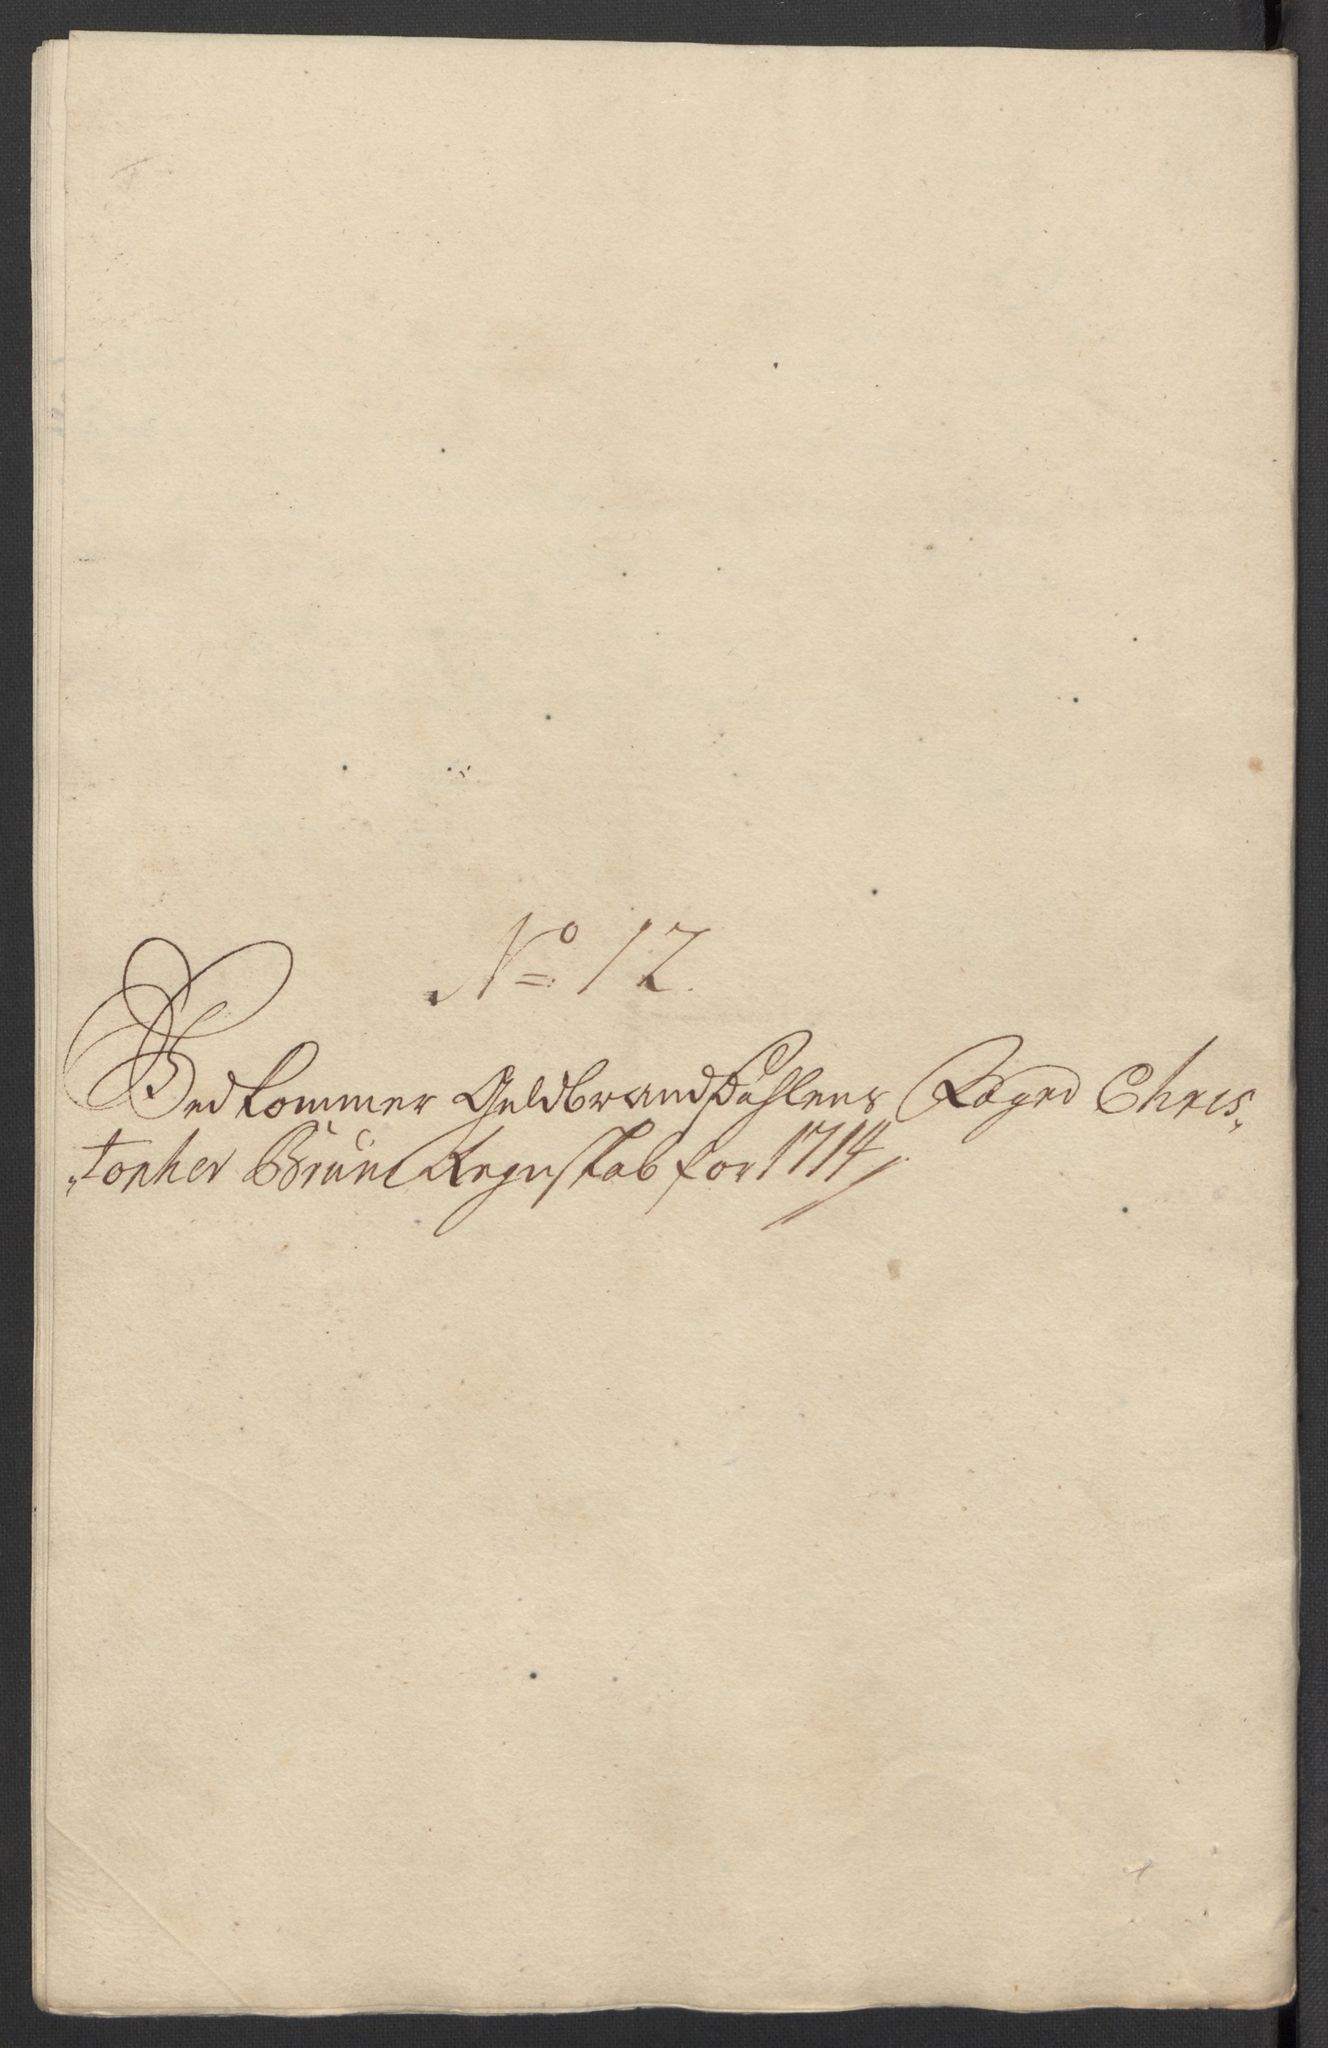 No 12.
Vedkommer Guldbrandsdahlens Foged Chris„
„topher Bruun Regnskab for 1714